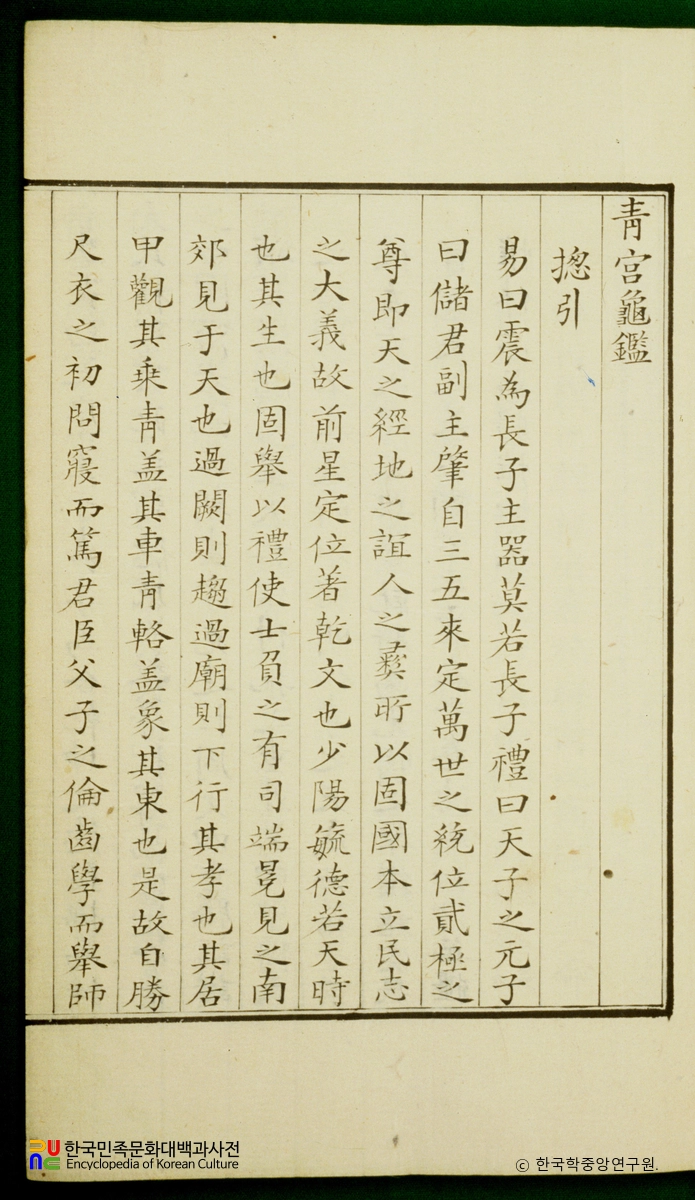 青宮龜鑑
揔引
易曰震為長子主器莫若長子禮曰天子之元子
曰儲君副主肇自三五來定萬世之統位貳極之
尊即天之經地之誼人之彛所以固國本立民志
之大義故前星定位著乾文也少陽毓德若天時
也其生也固舉以禮使士負之有司端冕見之南
郊見于天也過闕則趨過廟則下行其孝也其居
甲觀其乗青盖其車青輅盖象其東也是故自勝
尺衣之初問寢而篤君臣父子之倫齒學而舉師
한국민족문화대백과사전
Encyclopedia of Korean Culture
ⓒ 한국학중앙연구원.